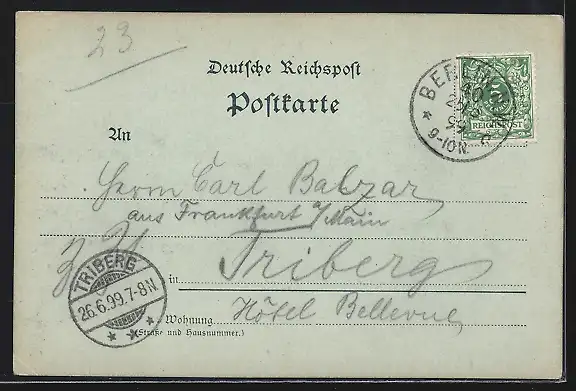 23
Deutsche Reichspost
Postkarte
BERLIN
9-10N.
REICHSPOST
An
Herrn Carl Balzar
aus Frankfurt a/Main
z. Z.
in Triberg
Hôtel Bellevue
Wohnung
(Straße und Hausnummer.)
TRIBERG
26.6.99.7-8N